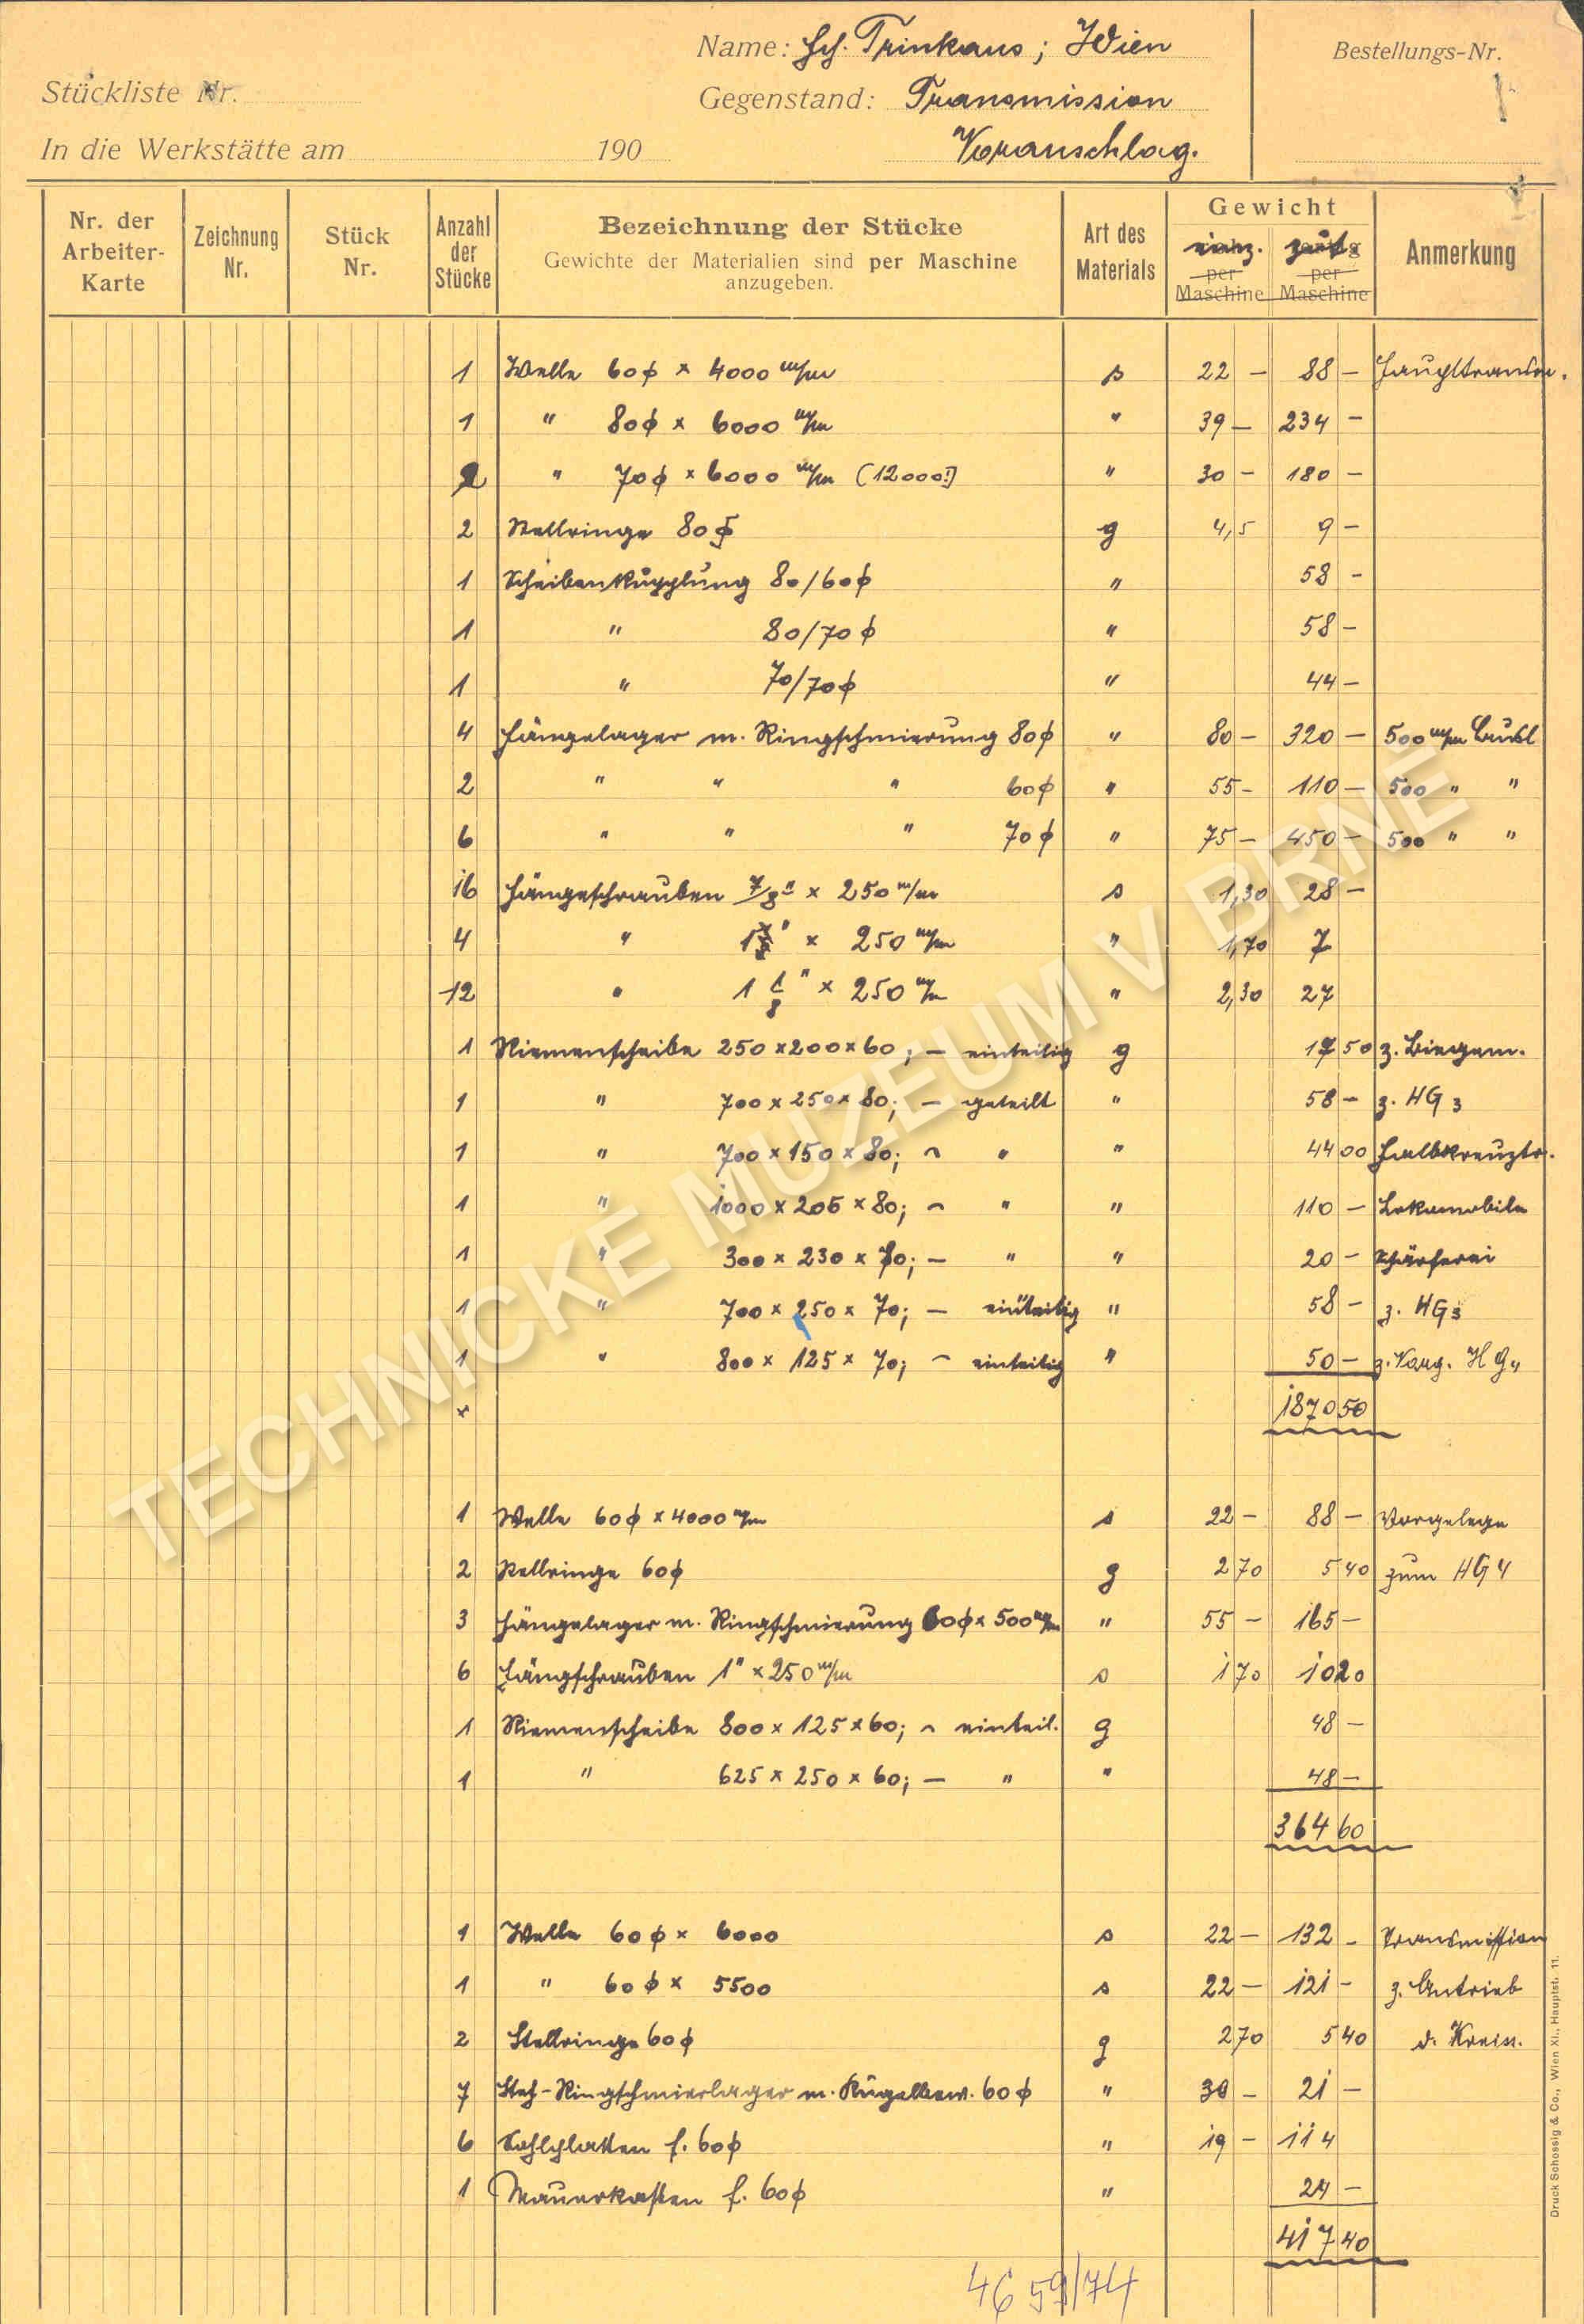 Name: Hch. Trinkaus; Wien
Bestellungs-Nr.
Stückliste Nr.
Gegenstand: Transmission
In die Werkstätte am 190
Voranschlag.
Nr. der Arbeiter-Karte
Zeichnung Nr.
Stück Nr.
Anzahl der Stücke
Bezeichnung der Stücke
Gewichte der Materialien sind per Maschine anzugeben.
Art des Materials
Gewicht
einz. per Maschine
per Maschine
Anmerkung
1 Welle 60 φ × 4000 m/m s 22 – 88 – Haupttransm.
1 " 80 φ × 6000 m/m " 39 – 234 –
2 " 70 φ × 6000 m/m (12000!) " 30 – 180 –
2 Stellringe 80 φ g 4,5 9 –
1 Scheibenkupplung 80/60 φ " 58 –
1 " 80/70 φ " 58 –
1 " 70/70 φ " 44 –
4 Hängelager m. Ringschmierung 80 φ " 80 – 320 – 500 m/m Ausl
2 " " " 60 φ " 55 – 110 – 500 " "
6 " " " 70 φ " 75 – 450 – 500 " "
16 Hängeschrauben 7/8" × 250 m/m s 1,30 28 –
4 " × 250 m/m " 1,70 7
12 " 1 1/8" × 250 m/m " 2,30 27
1 Riemenscheibe 250 × 200 × 60; – einteilig g 17 50 z. Biegem.
1 " 700 × 250 × 80; – geteilt " 58 – z. HG 3
1 " 700 × 150 × 80; ⌢ " " 44 00 Halbkreuztr.
1 " 1000 × 205 × 80; ⌢ " " 110 – Lokomobile
1 " 300 × 230 × 70; – " " 20 – Schärferei
1 " 700 × 250 × 70; – einteilig " 58 – z. HG 3
1 " 800 × 125 × 70; ⌢ einteilig " 50 – z. Vorg. HG 4
× 1870 50
1 Welle 60 φ × 4000 m/m s 22 – 88 – Vorgelege
2 Stellringe 60 φ g 2 70 5 40 zum HG 4
3 Hängelager m. Ringschmierung 60 φ × 500 m/m " 55 – 165 –
6 Hängschrauben 1" × 250 m/m s 1 70 10 20
1 Riemenscheibe 800 × 125 × 60; ⌢ einteil. g 48 –
1 " 625 × 250 × 60; – " " 48 –
364 60
1 Welle 60 φ × 6000 s 22 – 132 – Transmission
1 " 60 φ × 5500 s 22 – 121 – z. Antrieb
2 Stellringe 60 φ g 2 70 5 40 d. Kreiss.
7 Steh-Ringschmierlager m. Kugelbew. 60 φ " 30 – 21 –
6 Sohlplatten f. 60 φ " 19 – 114
1 Mauerkasten f. 60 φ " 24 –
417 40
4659/74
Druck Schossig & Co., Wien XI., Hauptst. 11.
TECHNICKÉ MUZEUM V BRNĚ